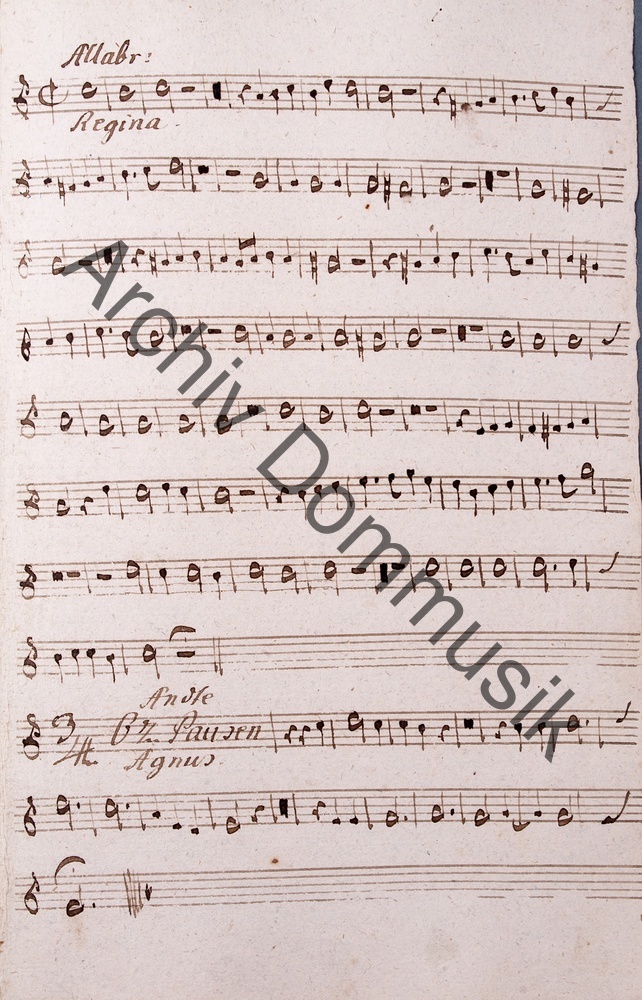 Allabr:
Regina.
Andte
3/4 62 Pausen
Agnus.
Archiv Dommusik